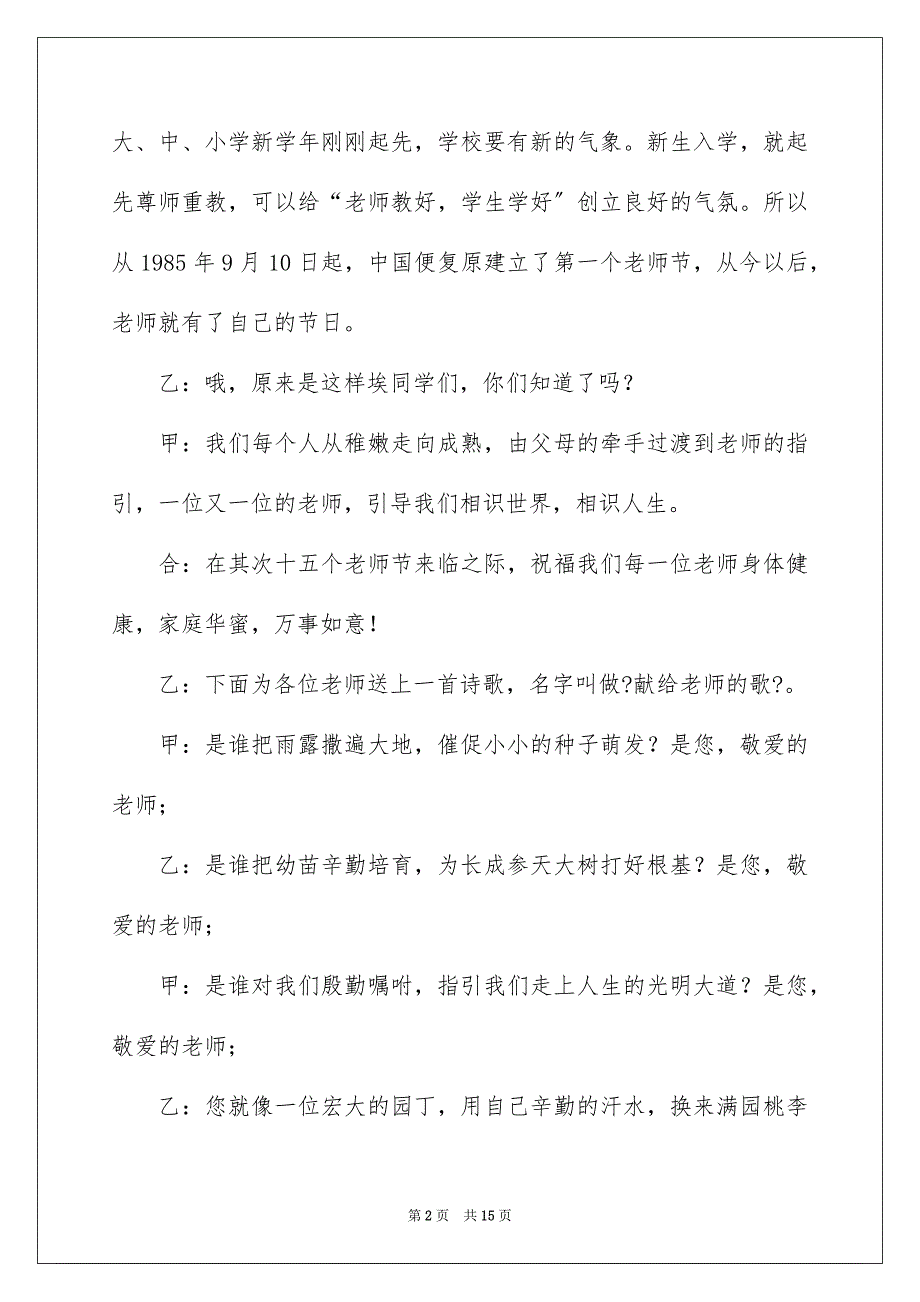 大、中、小学新学年刚刚起先，学校要有新的气象。新生入学，就起
先尊师重教，可以给“老师教好，学生学好〞创立良好的气氛。所以
从 1985 年 9 月 10 日起，中国便复原建立了第一个老师节，从今以后，
老师就有了自己的节日。
乙：哦，原来是这样埃同学们，你们知道了吗？
甲：我们每个人从稚嫩走向成熟，由父母的牵手过渡到老师的指
引，一位又一位的老师，引导我们相识世界，相识人生。
合：在其次十五个老师节来临之际，祝福我们每一位老师身体健
康，家庭华蜜，万事如意！
乙：下面为各位老师送上一首诗歌，名字叫做?献给老师的歌?。
甲：是谁把雨露撒遍大地，催促小小的种子萌发？是您，敬爱的
老师；
乙：是谁把幼苗辛勤培育，为长成参天大树打好根基？是您，敬
爱的老师；
甲：是谁对我们殷勤嘱咐，指引我们走上人生的光明大道？是您，
敬爱的老师；
乙：您就像一位宏大的园丁，用自己辛勤的汗水，换来满园桃李
第 2 页 共 15 页